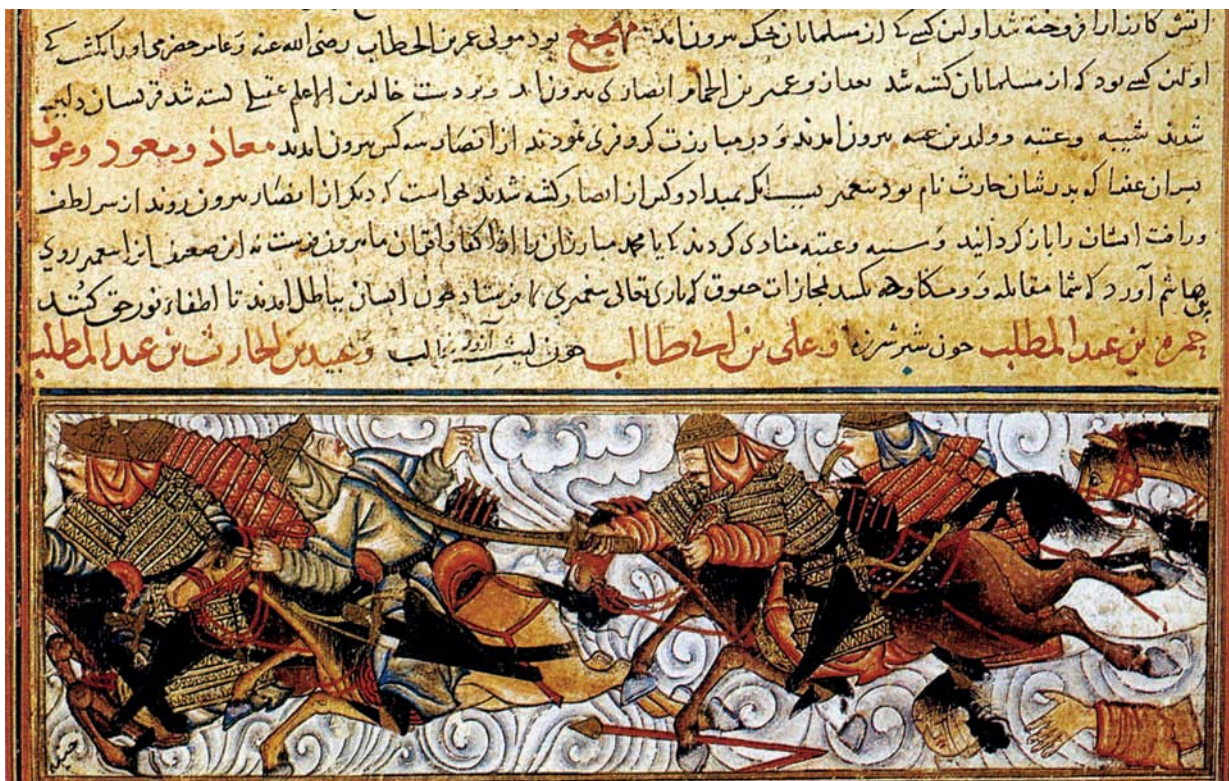 آتش کارزار افروخته شد اولین کسے کے از مسلمانان بجنک بیرون آمد مهجع بود مولی عمر بن الخطاب رضی الله عنه و عامر حضرمی اورا بکشت کے
اولین کسے بود که از مسلمانان کشته شد بعد از و عمیر بن الحمام انصاری بیرون آمد و بر دست خالد بن الاعلم عقیلے کشته شد قریشان دلیر
شدند شیبه وعتبه و ولید بن عتبه بیرون آمدند و در مبارزت کروفری نمودند از انصار سه کس بیرون آمدند معاذ ومعود وعوف
بسران عفرا که بدرشان حارث نام بود بیغمبر دو کس از انصار کشته شدند نخواست که دیکر از انصار بیرون روند از سر لطف
ورافت ایشان را باز کردانید و شیبه وعتبه منادی کردند کے یا محمد مبارزان را از اکفا واقران ما بیرون فرست نه این بیغمبر روی
بهاشم آورد که شما مقابله و بکنید مجازات حقوق که باری تعالی بیغمبری را فرستاد جون ایشان بباطل آمدند تا اطفاء نور حق کنند
حمزه بن عبد المطلب جون شیر شرزه و علی بن ابی طالب جون لیث و عبید بن الحارث بن عبد المطلب